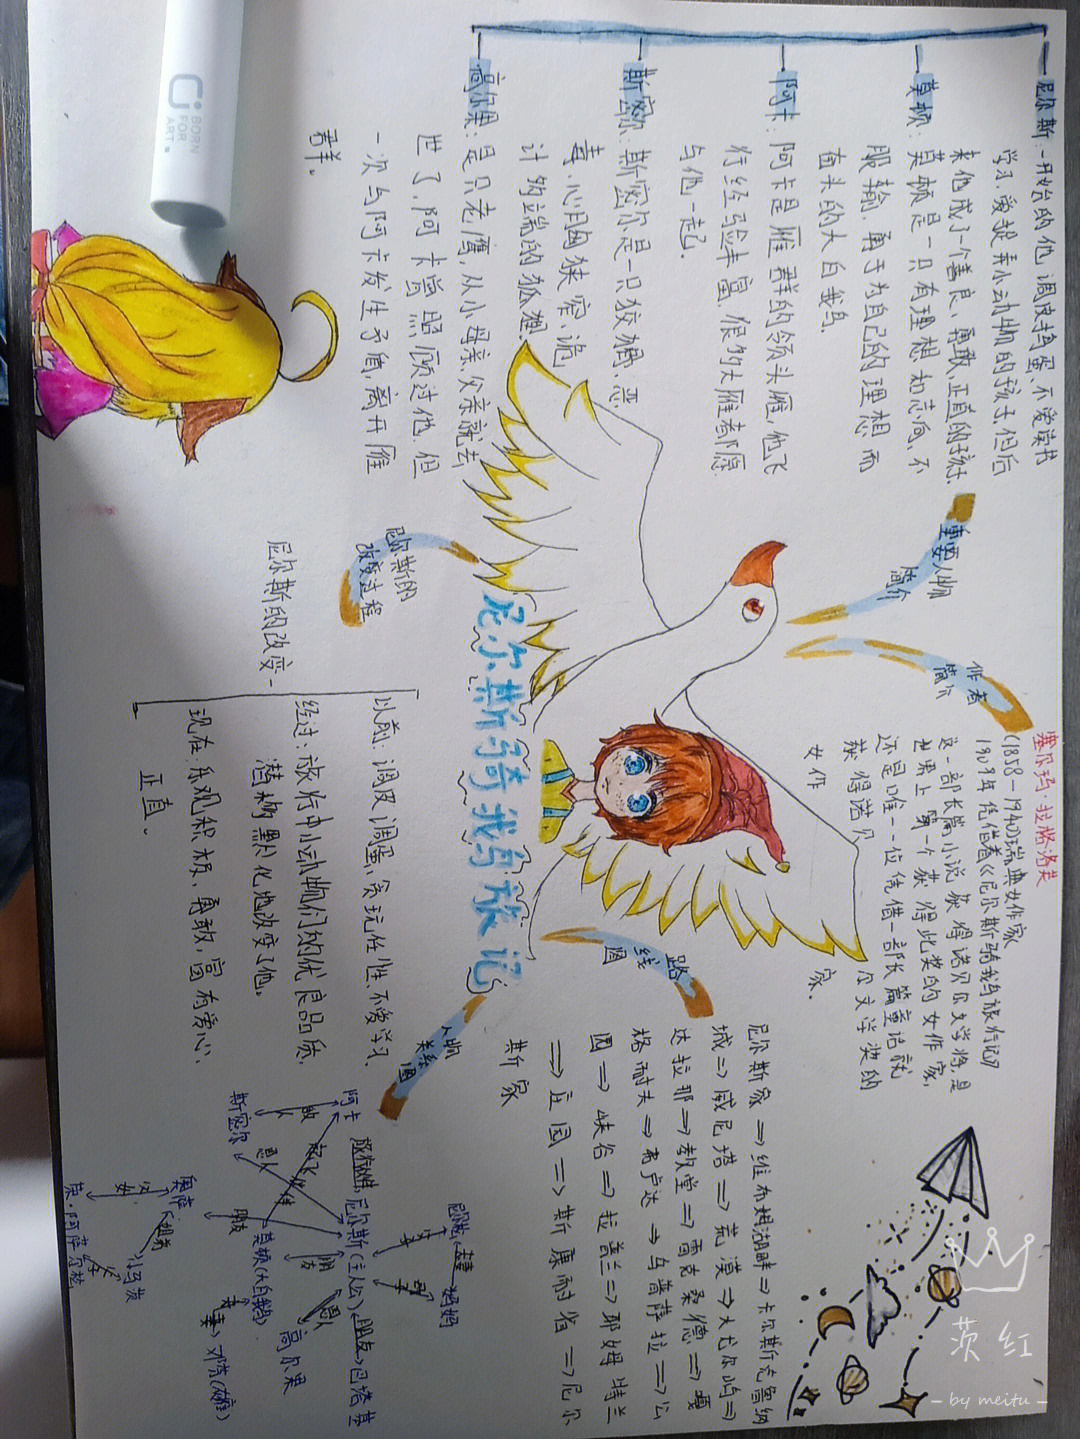 尼尔斯骑鹅旅记
重要人物
简介
尼尔斯:一开始的他,调皮捣蛋、不爱读书
学习,爱捉弄小动物的孩子,但后
来他成了一个善良、勇敢、正直的孩子.
莫顿:莫顿是一只有理想和志向、不
服输,勇于为自己的理想而
奋斗的大白鹅.
阿卡:阿卡是雁群的领头雁,他飞
行经验丰富,很多大雁都愿
与他一起.
斯密尔:斯密尔是一只狡猾、恶
毒、心胸狭窄、诡
计多端的狐狸.
高尔果:是只老鹰,从小,母亲、父亲就去
世了,阿卡曾照顾过他,但
一次与阿卡发生矛盾,离开雁
群。
作者
简介
塞尔玛·拉格洛芙
(1858-1940)瑞典女作家
1909年凭借着《尼尔斯骑鹅旅行记》
这一部长篇小说获得诺贝尔文学将,是
世界上第一个获得此奖的女作家,
还是唯一一位凭借一部长篇童话就
获得诺贝尔文学奖的
女作家.
尼尔斯的
改变过程
尼尔斯的改变-
以前:调皮调蛋,贪玩任性,不爱学习.
经过:旅行中小动物们的优良品质
潜移默化地改变了他。
现在:乐观积极,勇敢,富有爱心,
正直。
路
线
图
尼尔斯家⇒维布姆湖畔⇒卡尔斯克鲁纳
城⇒威尼塔⇒荒漠⇒大尤尔屿⇒
达拉那⇒教堂⇒雷克桑德⇒
格耐夫⇒布卢达⇒乌普萨拉⇒公
园⇒峡谷⇒拉普兰⇒耶姆特兰
⇒庄园⇒斯康耐省⇒尼尔
斯家
人物
关系
图
妈妈
阿卡
敌人
斯密尔
恩人
尼尔斯(主人公)
朋友
巴塔基
莫顿(大白鹅)
朋友
恩人
高尔果
夫妻
邓芬(雌雁)
朋友
奥萨
父女
小马茨
BORN
FOR
ART.
茨红
- by meitu -